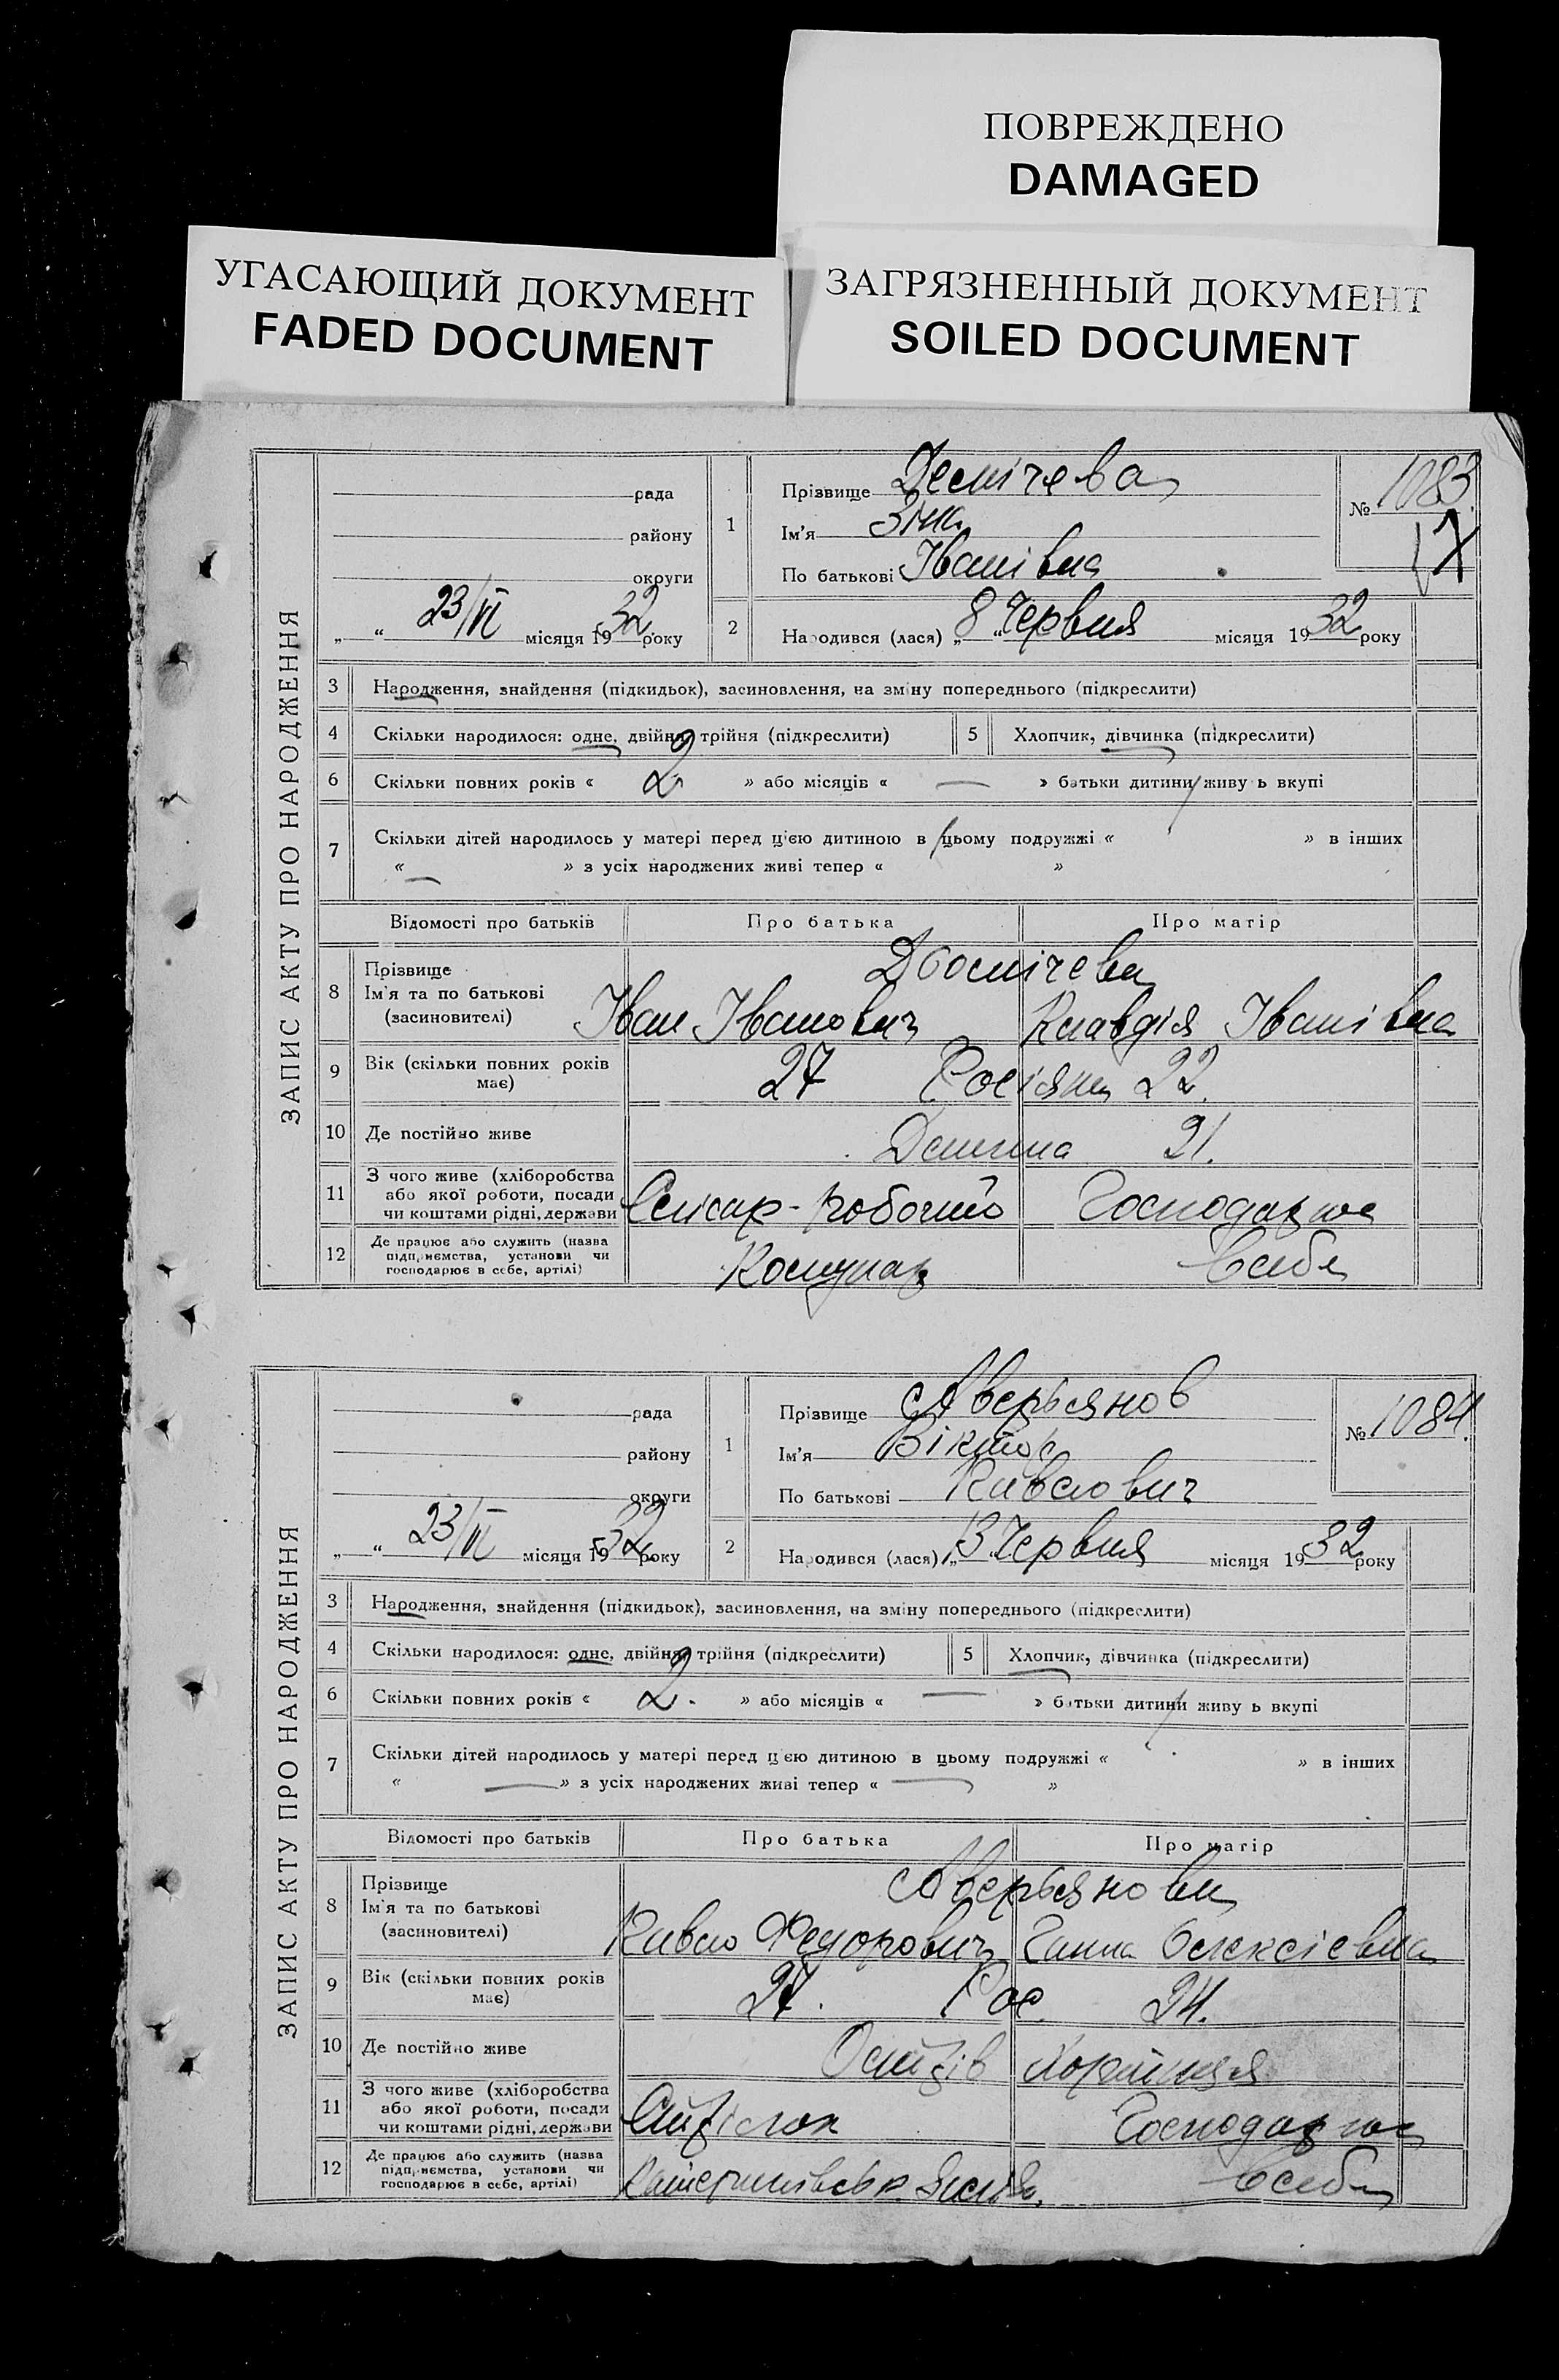 ПОВРЕЖДЕНО
DAMAGED
УГАСАЮЩИЙ ДОКУМЕНТ
FADED DOCUMENT
ЗАГРЯЗНЕННЫЙ ДОКУМЕНТ
SOILED DOCUMENT
ЗАПИС АКТУ ПРО НАРОДЖЕННЯ
рада
району
округи
„ “ 23/VI місяця 1932 року
1
Прізвище
Ім'я Зіна
По батькові Іванівна
№ 1083
2 Народився (лася) „ 8 “ Червня місяця 1932 року
3 Народження, знайдення (підкидьок), засиновлення, на зміну попереднього (підкреслити)
4 Скільки народилося: одне, двійня, трійня (підкреслити) 5 Хлопчик, дівчинка (підкреслити)
6 Скільки повних років « 2 » або місяців « — » батьки дитини живу ь вкупі
7 Скільки дітей народилось у матері перед цією дитиною в цьому подружжі « » в інших
« — » з усіх народжених живі тепер « »
Відомості про батьків Про батька Про матір
8 Прізвище
Ім'я та по батькові
(засиновителі)
Іван Іванович Клавдія Іванівна
9 Вік (скільки повних років має) 27 Росіяни 22.
10 Де постійно живе 21.
11 З чого живе (хліборобства або якої роботи, посади чи коштами рідні, держави Слюсар-робочий Господарює
12 Де працює або служить (назва підприємства, установи чи господарює в себе, артілі) Комунар В себе
ЗАПИС АКТУ ПРО НАРОДЖЕННЯ
рада
району
округи
„ “ 23/VI місяця 1932 року
1
Прізвище Авер'янов
Ім'я Віктор
По батькові Павлович
№ 1084.
2 Народився (лася) „ 13 “ Червня місяця 1932 року
3 Народження, знайдення (підкидьок), засиновлення, на зміну попереднього (підкреслити)
4 Скільки народилося: одне, двійня, трійня (підкреслити) 5 Хлопчик, дівчинка (підкреслити)
6 Скільки повних років « 2. » або місяців « — » батьки дитини живу ь вкупі
7 Скільки дітей народилось у матері перед цією дитиною в цьому подружжі « » в інших
« — » з усіх народжених живі тепер « — »
Відомості про батьків Про батька Про матір
8 Прізвище
Ім'я та по батькові
(засиновителі)
Авер'янови
Павло Федорович Ганна Олексієвна
9 Вік (скільки повних років має) 27. Рос. 24.
10 Де постійно живе Острів Хортиця
11 З чого живе (хліборобства або якої роботи, посади чи коштами рідні, держави Стрілок Господарює
12 Де працює або служить (назва підприємства, установи чи господарює в себе, артілі) В себе